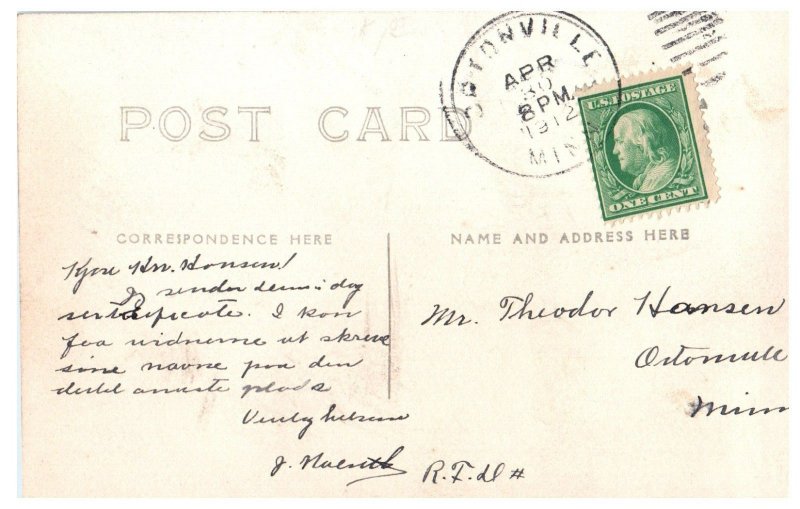 ORTONVILLE
APR
30
8 PM
1912
MINN
U.S. POSTAGE
ONE CENT
POST CARD
CORRESPONDENCE HERE
NAME AND ADDRESS HERE
Kjære Hr. Hansen!
Jeg sender dem i dag
sertificate. I kan
faa vidnerne at skreve
sine navne paa den
dertil anviste plads
Venlig hilsen
J.
Mr. Theodor Hansen
Ortonville
Minn
R.F.D #